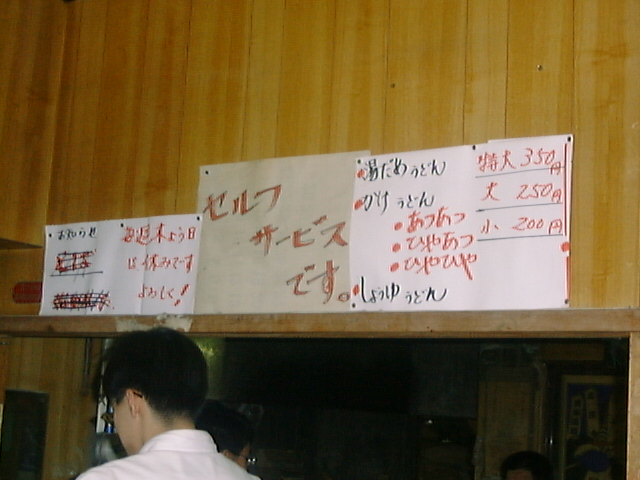 お知らせ
毎週木よう日
は休みです
よろしく!
セルフ
サービス
です。
湯だめうどん
かけうどん
あつあつ
ひやあつ
ひやひや
しょうゆうどん
特大 350円
大 250円
小 200円